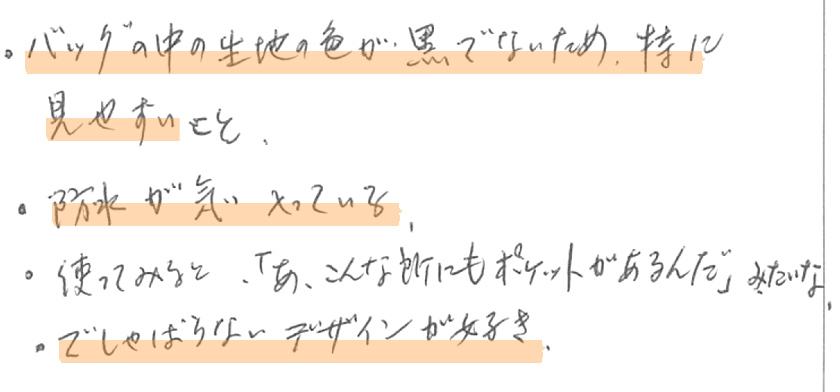 ・バッグの中の生地の色が黒でないため、特に
見やすいこと、
・防水が気に入っている、
・使ってみると、「あ、こんな所にもポケットがあるんだ」みたいな、
・でしゃばらないデザインが好き、